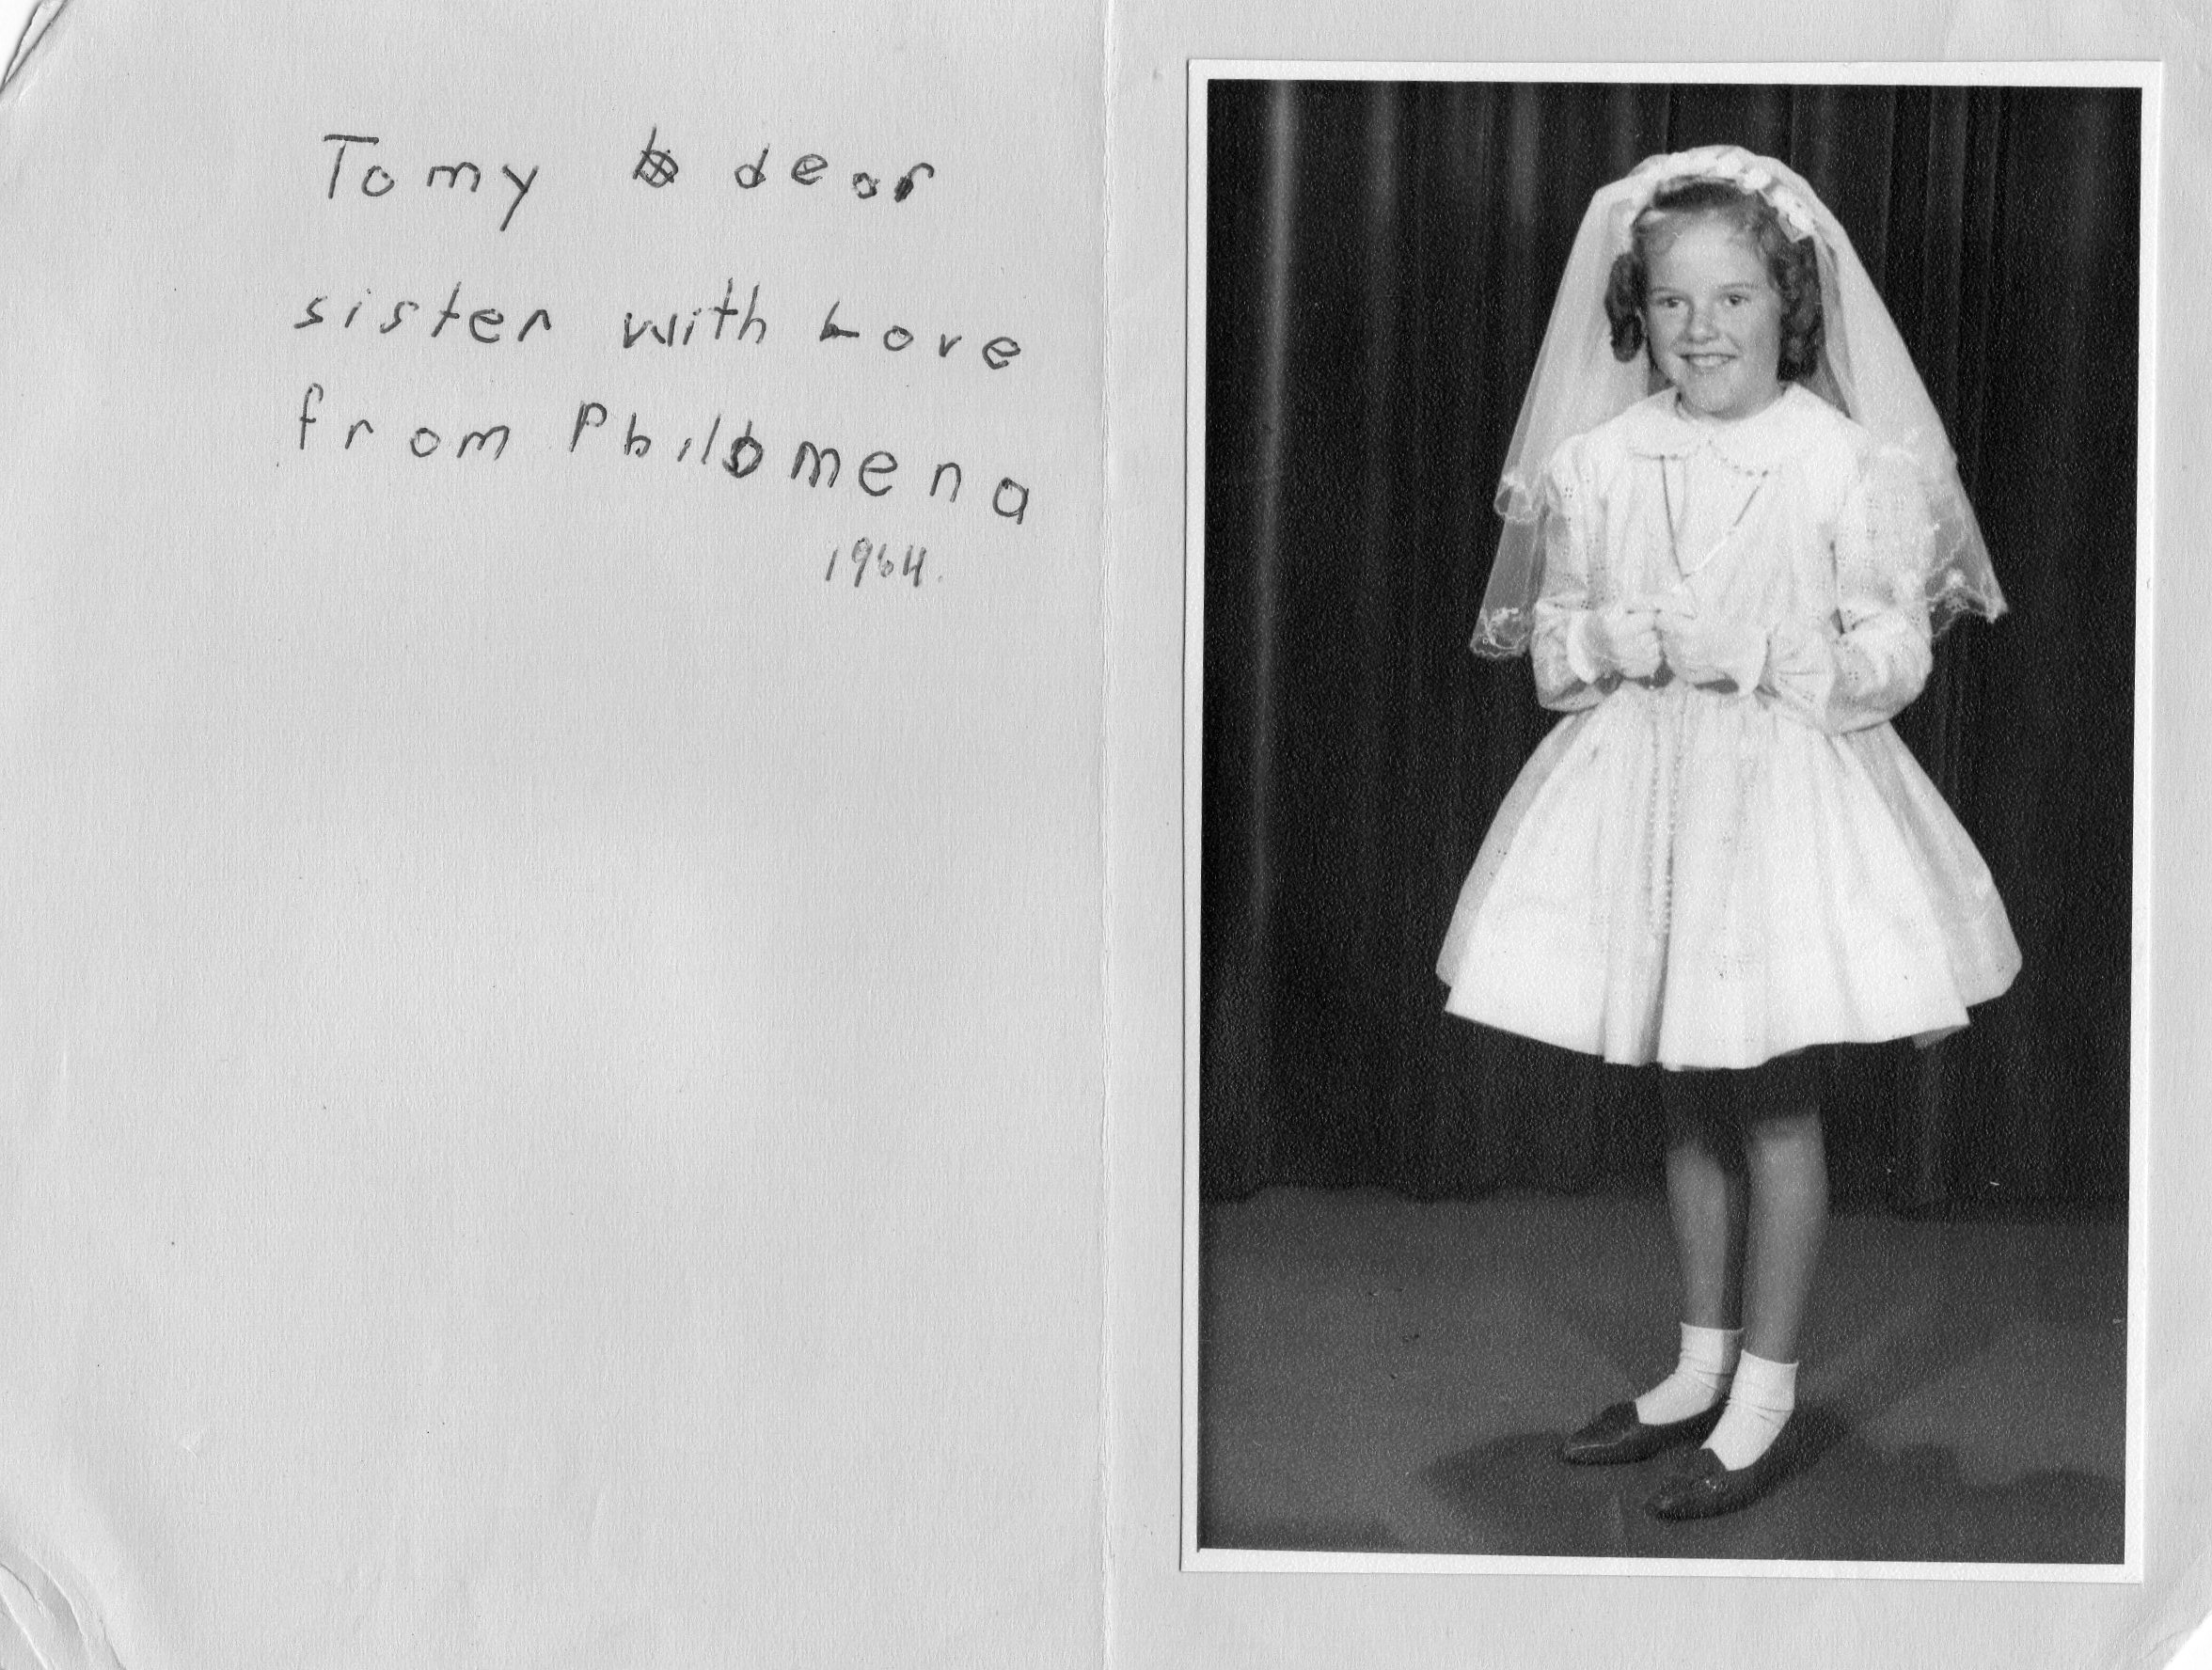 To my dear
sister with Love
from Philomena
1964.